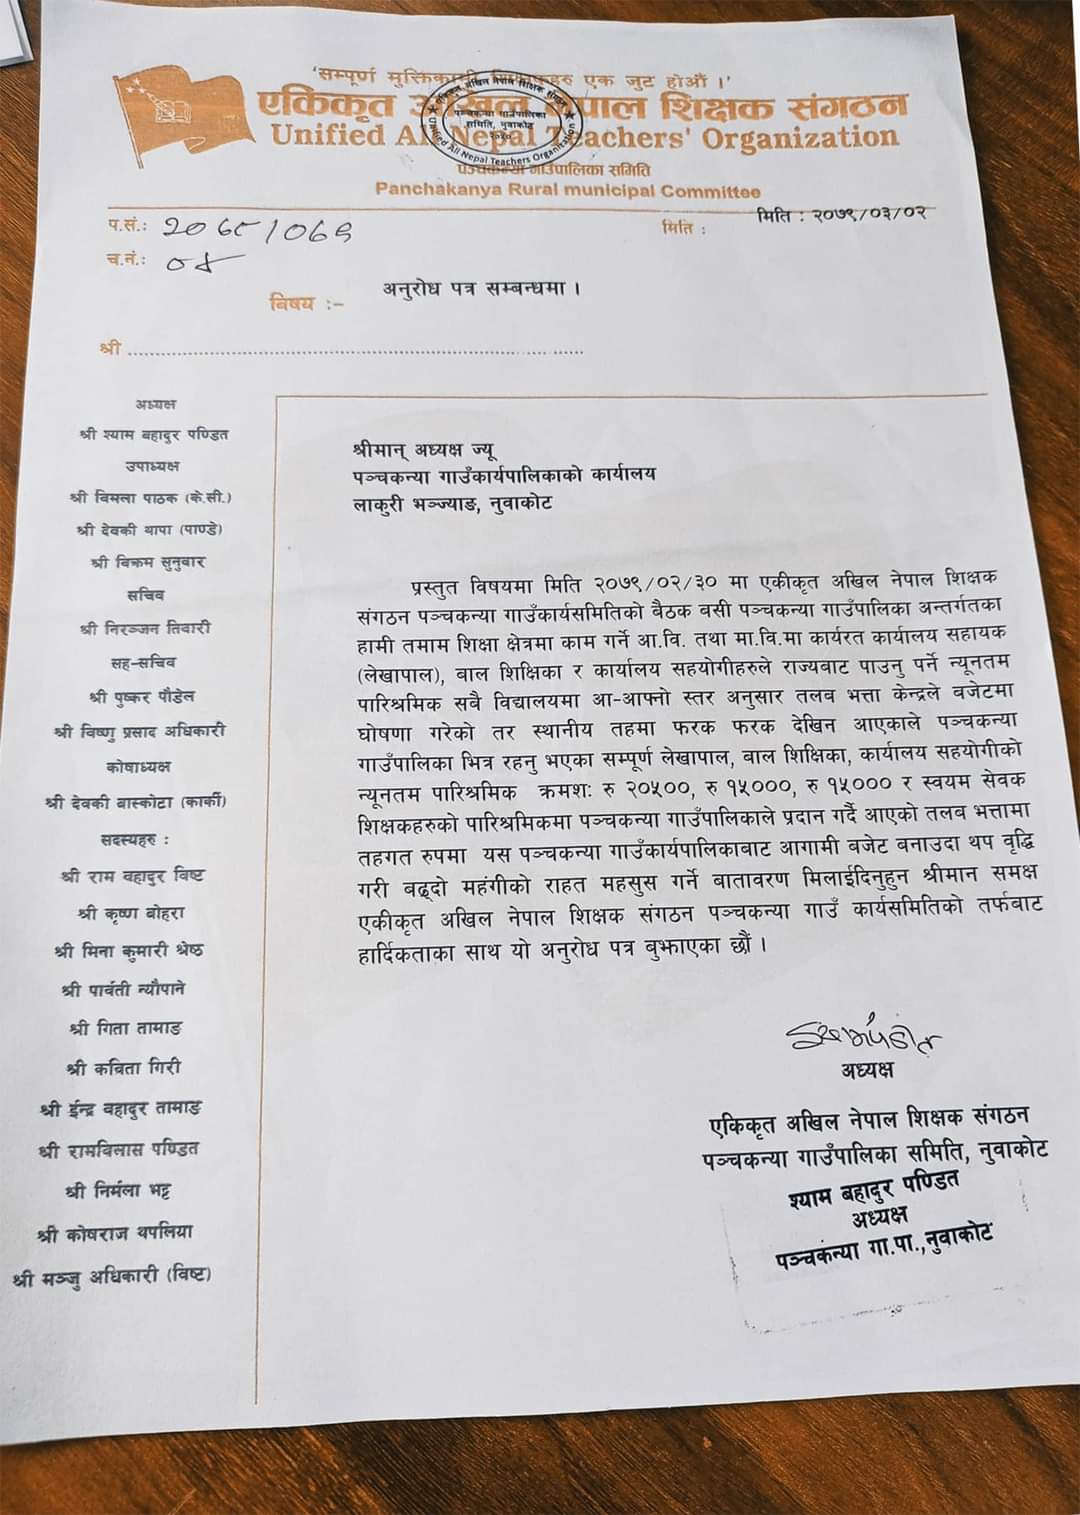 'सम्पूर्ण मुक्तिकामी शिक्षकहरु एक जुट होऔं ।'
एकिकृत अखिल नेपाल शिक्षक संगठन
Unified All Nepal Teachers' Organization
पञ्चकन्या गाउँपालिका समिति
Panchakanya Rural municipal Committee
एकिकृत अखिल नेपाल शिक्षक संगठन
पञ्चकन्या गाउँपालिका
समिति, नुवाकोट
Unified All Nepal Teachers Organization
प.सं.: २०७८/०७९
मिति : मिति : २०७९/०३/०२
च.नं.: ०४
विषय :- अनुरोध पत्र सम्बन्धमा ।
श्री
अध्यक्ष
श्री श्याम बहादुर पण्डित
उपाध्यक्ष
श्री विमला पाठक (के.सी.)
श्री देवकी थापा (पाण्डे)
श्री विक्रम सुनुवार
सचिव
श्री निरञ्जन तिवारी
सह-सचिव
श्री पुष्कर पौडेल
श्री विष्णु प्रसाद अधिकारी
कोषाध्यक्ष
श्री देवकी बास्कोटा (कार्की)
सदस्यहरु :
श्री राम बहादुर विष्ट
श्री कृष्ण बोहरा
श्री मिना कुमारी श्रेष्ठ
श्री पार्वती न्यौपाने
श्री गिता तामाङ
श्री कविता गिरी
श्री ईन्द्र बहादुर तामाङ
श्री रामविलास पण्डित
श्री निर्मला भट्ट
श्री कोषराज थपलिया
श्री मञ्जु अधिकारी (विष्ट)
श्रीमान् अध्यक्ष ज्यू
पञ्चकन्या गाउँकार्यपालिकाको कार्यालय
लाकुरी भञ्ज्याङ, नुवाकोट
प्रस्तुत विषयमा मिति २०७९/०२/३० मा एकीकृत अखिल नेपाल शिक्षक
संगठन पञ्चकन्या गाउँकार्यसमितिको बैठक बसी पञ्चकन्या गाउँपालिका अन्तर्गतका
हामी तमाम शिक्षा क्षेत्रमा काम गर्ने आ.वि. तथा मा.वि.मा कार्यरत कार्यालय सहायक
(लेखापाल), बाल शिक्षिका र कार्यालय सहयोगीहरुले राज्यबाट पाउनु पर्ने न्यूनतम
पारिश्रमिक सबै विद्यालयमा आ-आफ्नो स्तर अनुसार तलब भत्ता केन्द्रले बजेटमा
घोषणा गरेको तर स्थानीय तहमा फरक फरक देखिन आएकाले पञ्चकन्या
गाउँपालिका भित्र रहनु भएका सम्पूर्ण लेखापाल, बाल शिक्षिका, कार्यालय सहयोगीको
न्यूनतम पारिश्रमिक क्रमशः रु २०५००, रु १५०००, रु १५००० र स्वयम सेवक
शिक्षकहरुको पारिश्रमिकमा पञ्चकन्या गाउँपालिकाले प्रदान गर्दै आएको तलब भत्तामा
तहगत रुपमा यस पञ्चकन्या गाउँकार्यपालिकाबाट आगामी बजेट बनाउदा थप वृद्धि
गरी बढ्दो महंगीको राहत महसुस गर्ने बातावरण मिलाईदिनुहुन श्रीमान समक्ष
एकीकृत अखिल नेपाल शिक्षक संगठन पञ्चकन्या गाउँ कार्यसमितिको तर्फबाट
हार्दिकताका साथ यो अनुरोध पत्र बुझाएका छौं ।
अध्यक्ष
एकिकृत अखिल नेपाल शिक्षक संगठन
पञ्चकन्या गाउँपालिका समिति, नुवाकोट
श्याम बहादुर पण्डित
अध्यक्ष
पञ्चकन्या गा.पा.,नुवाकोट